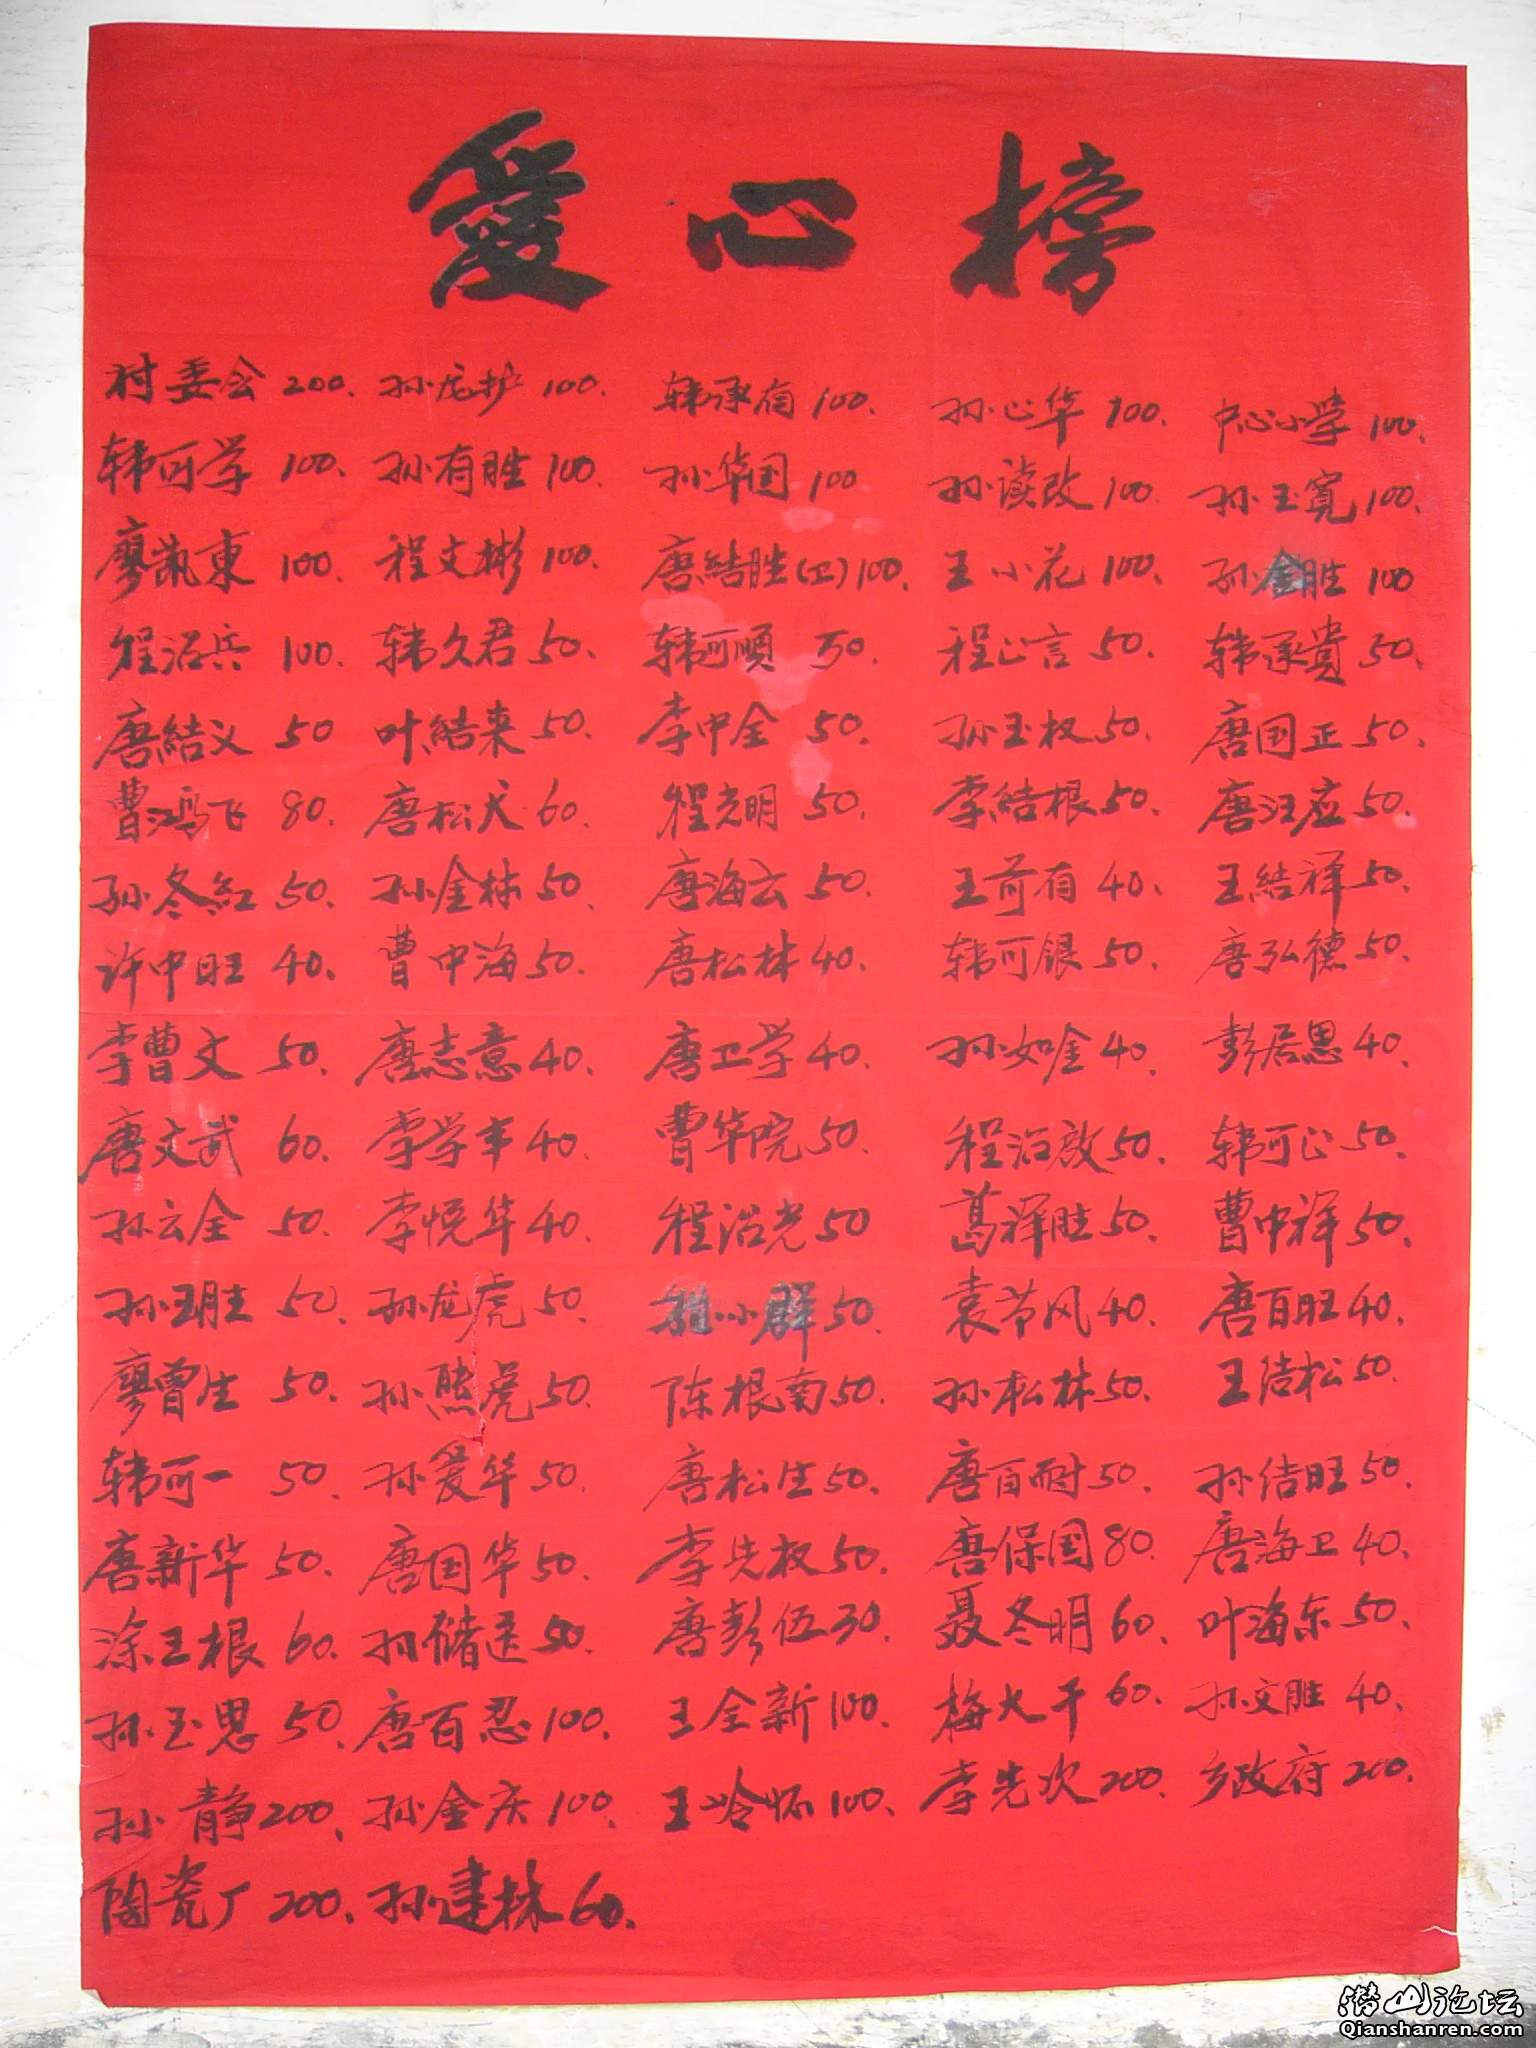 爱心榜
村委会 200. 孙龙护 100. 韩承有 100. 孙心华 100. 中心小学 100.
韩可学 100. 孙有胜 100. 孙华国 100 孙读改 100. 孙玉寬 100.
廖凯東 100. 程文彬 100. 唐結胜(卫) 100. 王小花 100. 孙金胜 100
程沼兵 100. 韩久君 50. 韩可順 50. 程心言 50. 韩承貴 50.
唐結义 50 叶結来 50. 李中全 50. 孙玉权 50. 唐国正 50.
曹鸿飞 80. 唐松犬 60. 程光明 50. 李結根 50. 唐汪应 50.
孙冬紅 50. 孙金林 50. 唐海云 50. 王前有 40. 王結祥 50.
许中旺 40. 曹中海 50. 唐松林 40. 韩可银 50. 唐弘德 50.
李曹文 50. 唐志意 40. 唐卫学 40. 孙如金 40. 彭居思 40.
唐文武 60. 李学丰 40. 曹华院 50. 程沼啟 50. 韩可心 50.
孙云全 50. 李悦华 40. 程沼光 50 葛祥胜 50. 曹中祥 50.
孙玉胜 50. 孙龙虎 50. 小群 50. 袁节风 40. 唐百旺 40.
廖曾生 50. 孙熊虎 50. 陈根南 50. 孙松林 50. 王洁松 50.
韩可一 50. 孙爱华 50. 唐松生 50. 唐百耐 50. 孙佶旺 50.
唐新华 50. 唐国华 50. 李先权 50. 唐保国 80. 唐海卫 40.
涂王根 60. 孙储送 50. 唐彭伍 30. 聂冬明 60. 叶海东 50.
孙玉思 50. 唐百忍 100. 王全新 100. 梅大干 60. 孙文胜 40.
孙静 200. 孙金庆 100. 王岭怀 100. 李先次 200. 乡政府 200.
陶瓷厂 200. 孙建林 60.
潜山论坛
Qianshanren.com